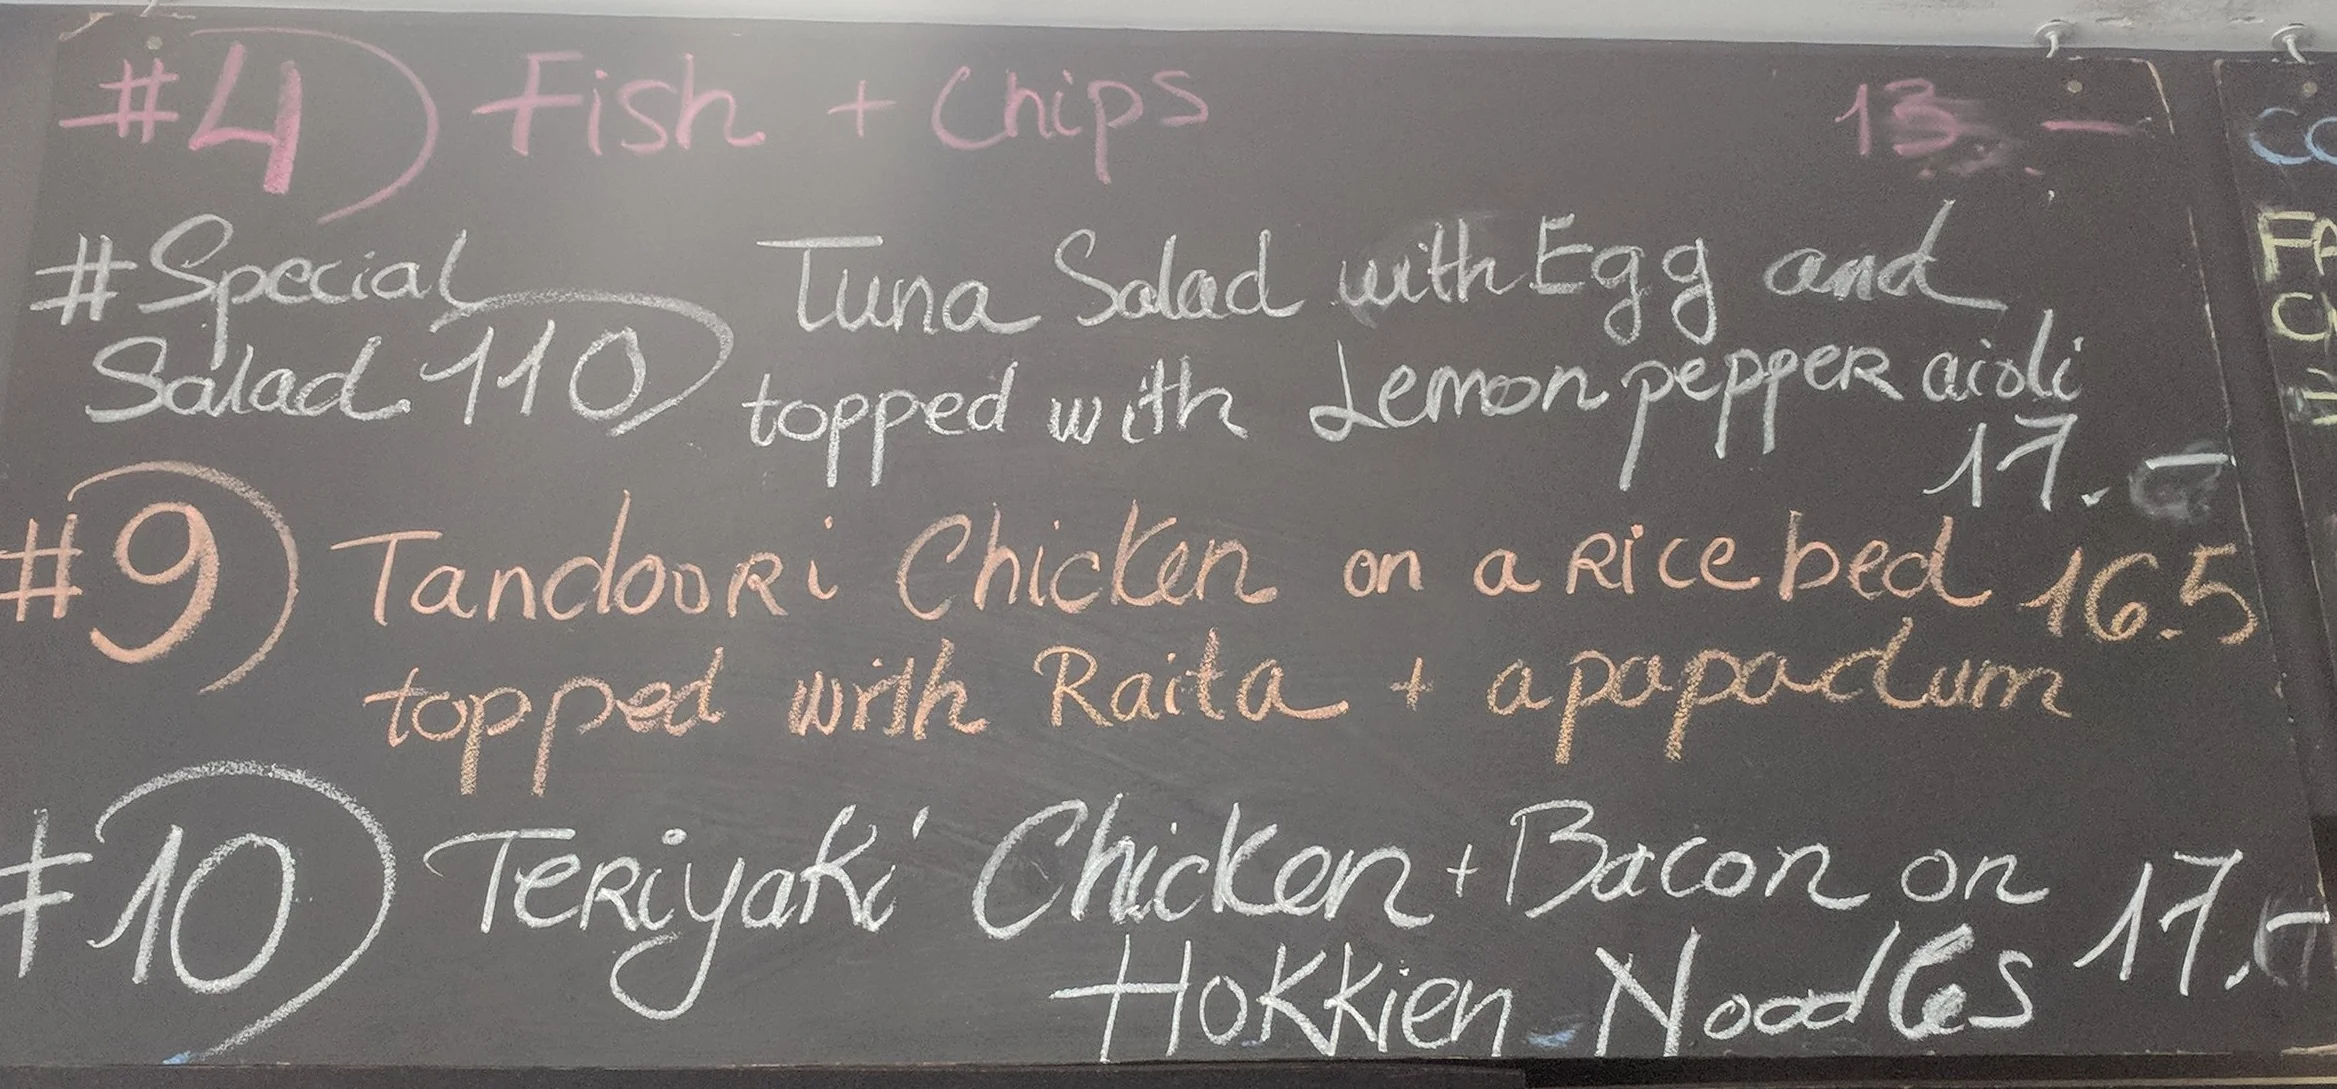 #4) Fish + Chips 13.-
#Special
Salad 110) Tuna Salad with Egg and
topped with Lemon pepper aioli
17.-
#9) Tandoori Chicken on a Rice bed 16.5
topped with Raita + a papadum
#10) Teriyaki Chicken + Bacon on 17.-
Hokkien Noodles